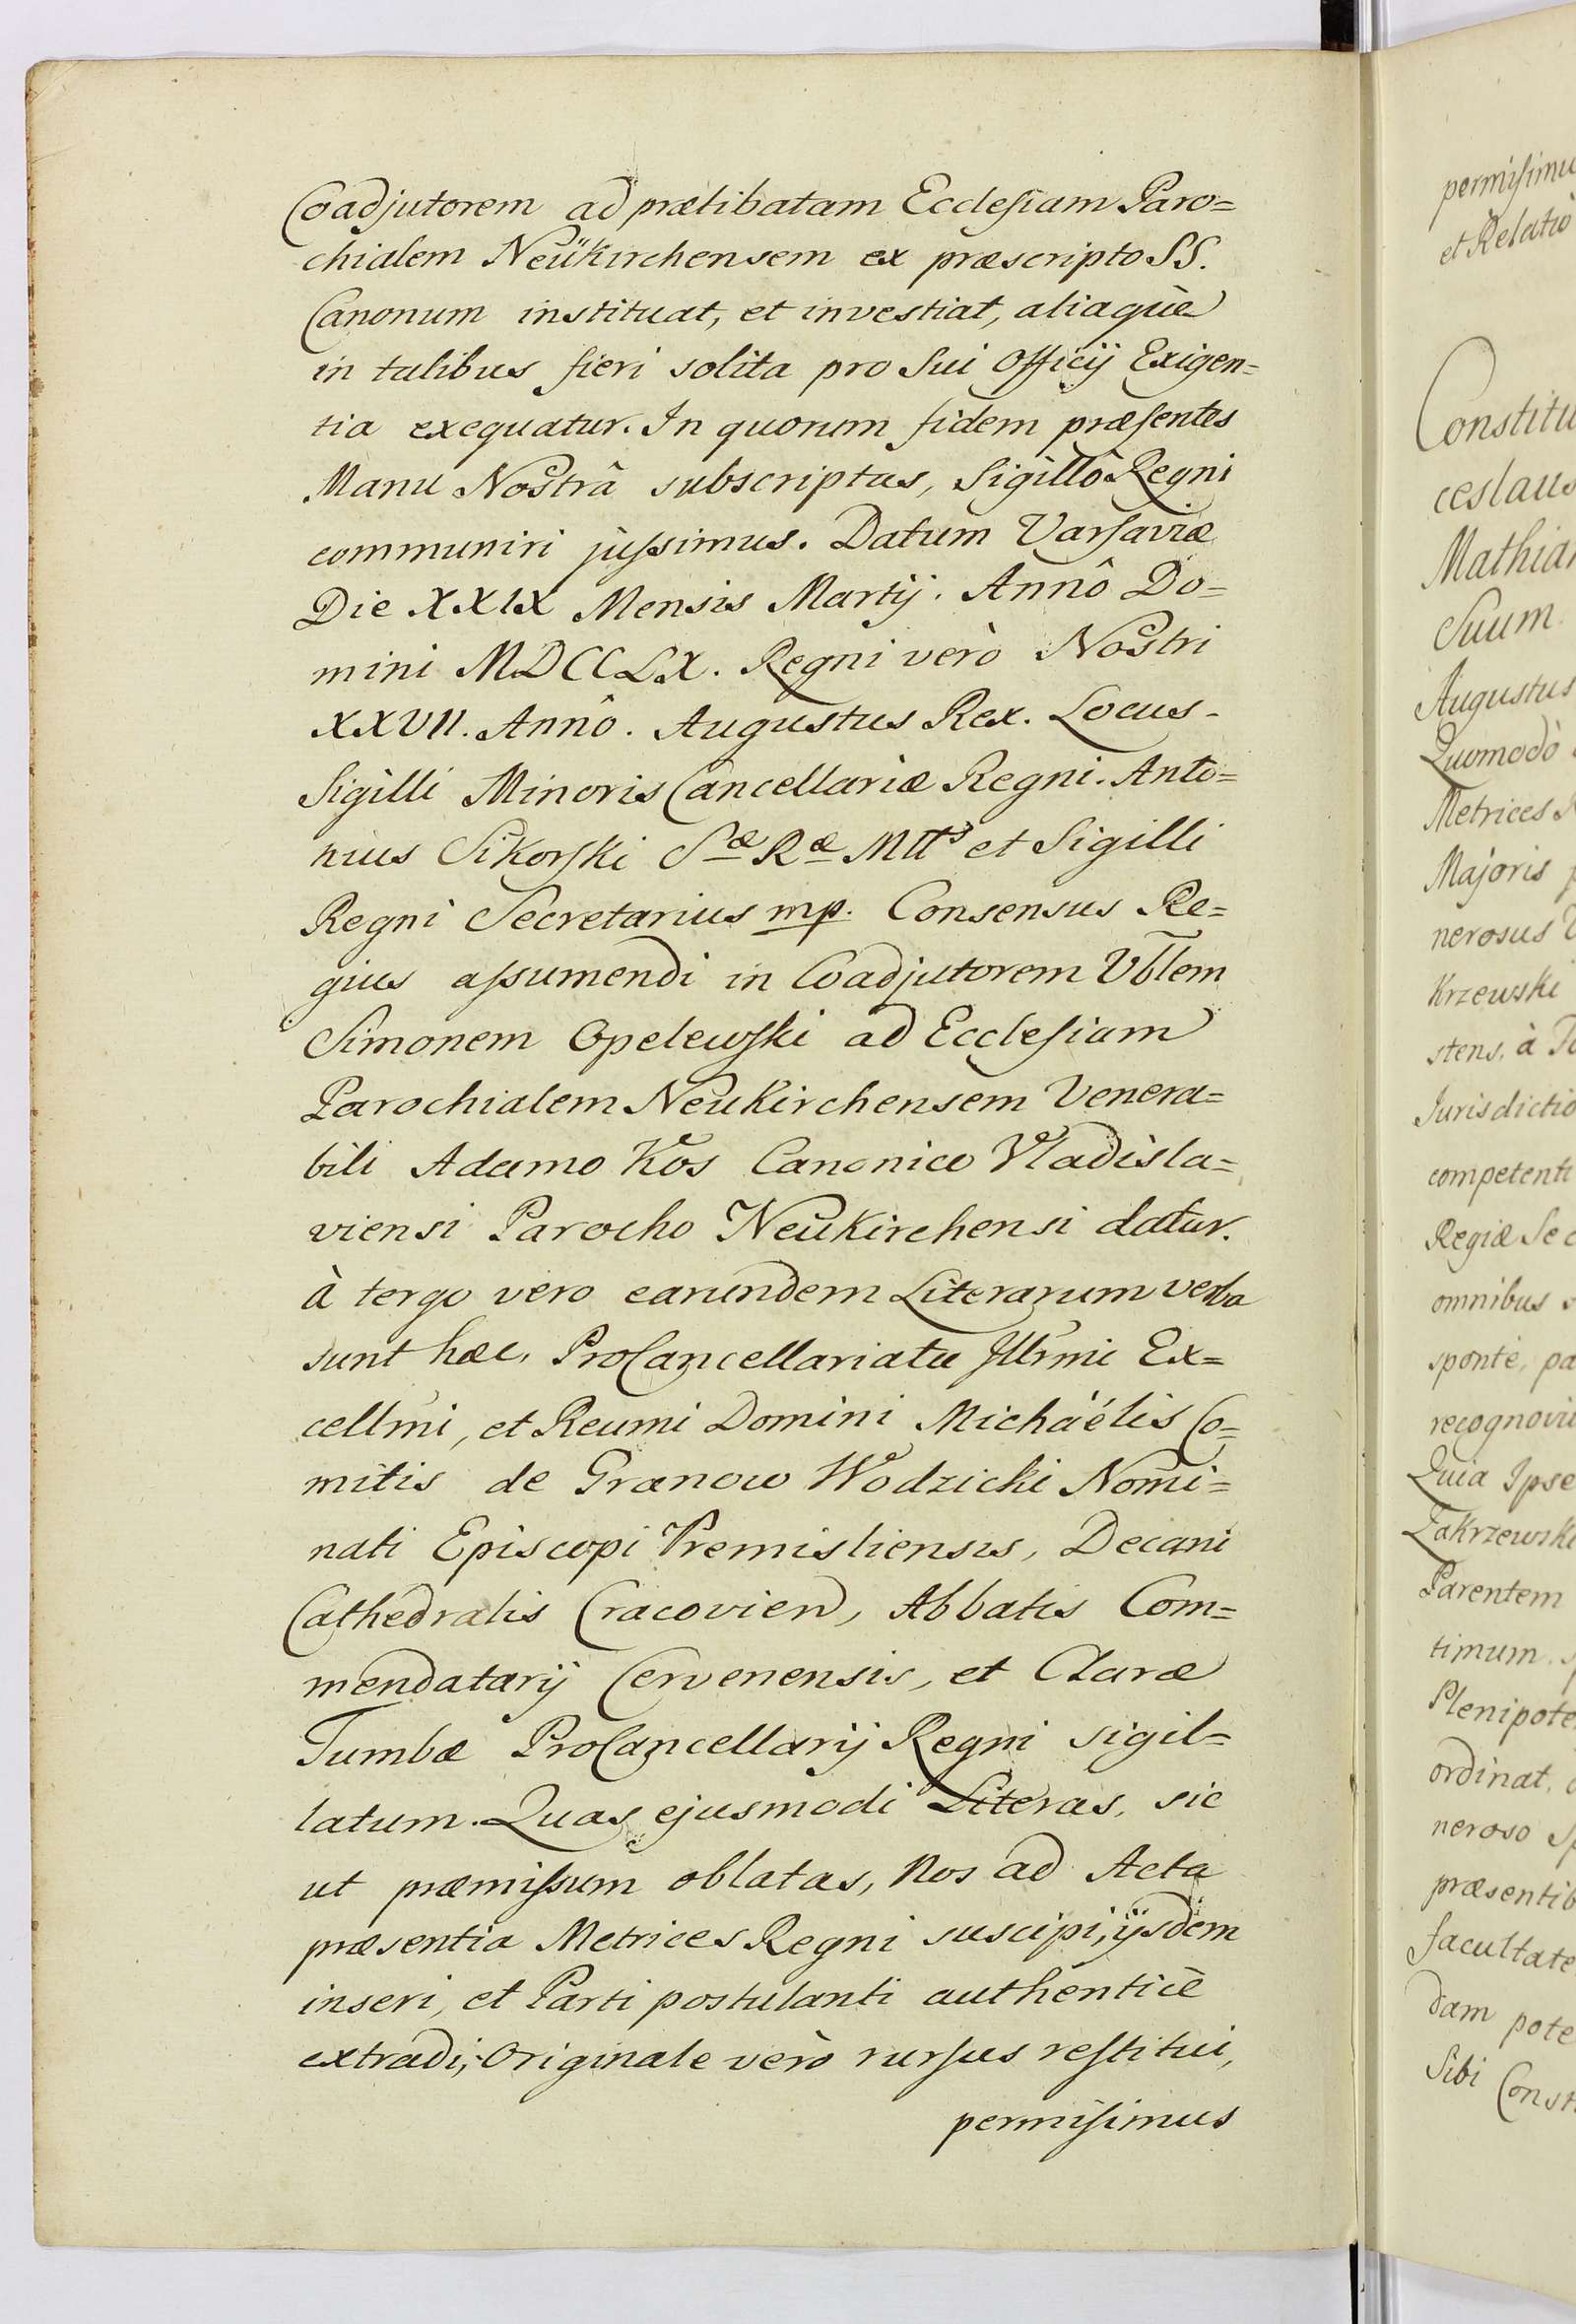 Coadjutorem ad prætibatam Ecclesiam Paro=
chialem Neükirchensem ex præscripto SS.
Canonum instituat, et investiat, aliaquè
in talibus fieri solita pro Sui Officij Exigen=
tia exequatur. In quorum fidem præsentes
Manu Nostrâ subscriptas, Sigillô Regni
communiri jussimus. Datum Varsaviæ
Die XXIX Mensis Martij. Annô Do=
mini MDCCLX. Regni verò Nostri
XXVII. Annô. Augustus Rex. Locus-
Sigilli Minoris Cancellariæ Regni. Anto=
nius Sikorski Sæ Ræ Mtts et Sigilli
Regni Secretarius mp. Consensus Re=
gius assumendi in Coadjutorem Vblem
Simonem Opelewski ad Ecclesiam
Parochialem Neukirchensem Venera=
bili Adamo Kos Canonico Vladisla=
viensi Parocho Neukirchensi datur.
à tergo vero earundem Literarum verba
sunt hæc, ProCancellariatu Illrmi Ex=
cellmi, et Reumi Domini Michàélis Co=
mitis de Granow Wodzicki Nomi=
nati Episcopi Premisliensis, Decani
Cathedralis Cracovien, Abbatis Com=
mendatarij Cervenensis, et Claræ
Tumbæ ProCancellarij Regni sigil=
latum. Quas ejusmodi Literas, sic
ut præmissum oblatas, Nos ad Acta
præsentia Metrices Regni suscipi, ijsdem
inseri, et Parti postulanti authenticè
extradi, Originale verò rursus restitui,
permisimus
permisimu
et Relatio
Constitu
ceslaus
Mathia
Suum
Augustus
Quomodò
Metrices
Majoris
nerosus
Krzewski
stens, à
Jurisdictio
competenti
Regiæ Sec
omnibus
sponte, pa
recognovi
Quia Ipse
Zakrzewski
Parentem
timum
Plenipote
ordinat,
neroso
præsentib
facultate
dam pote
Sibi Const